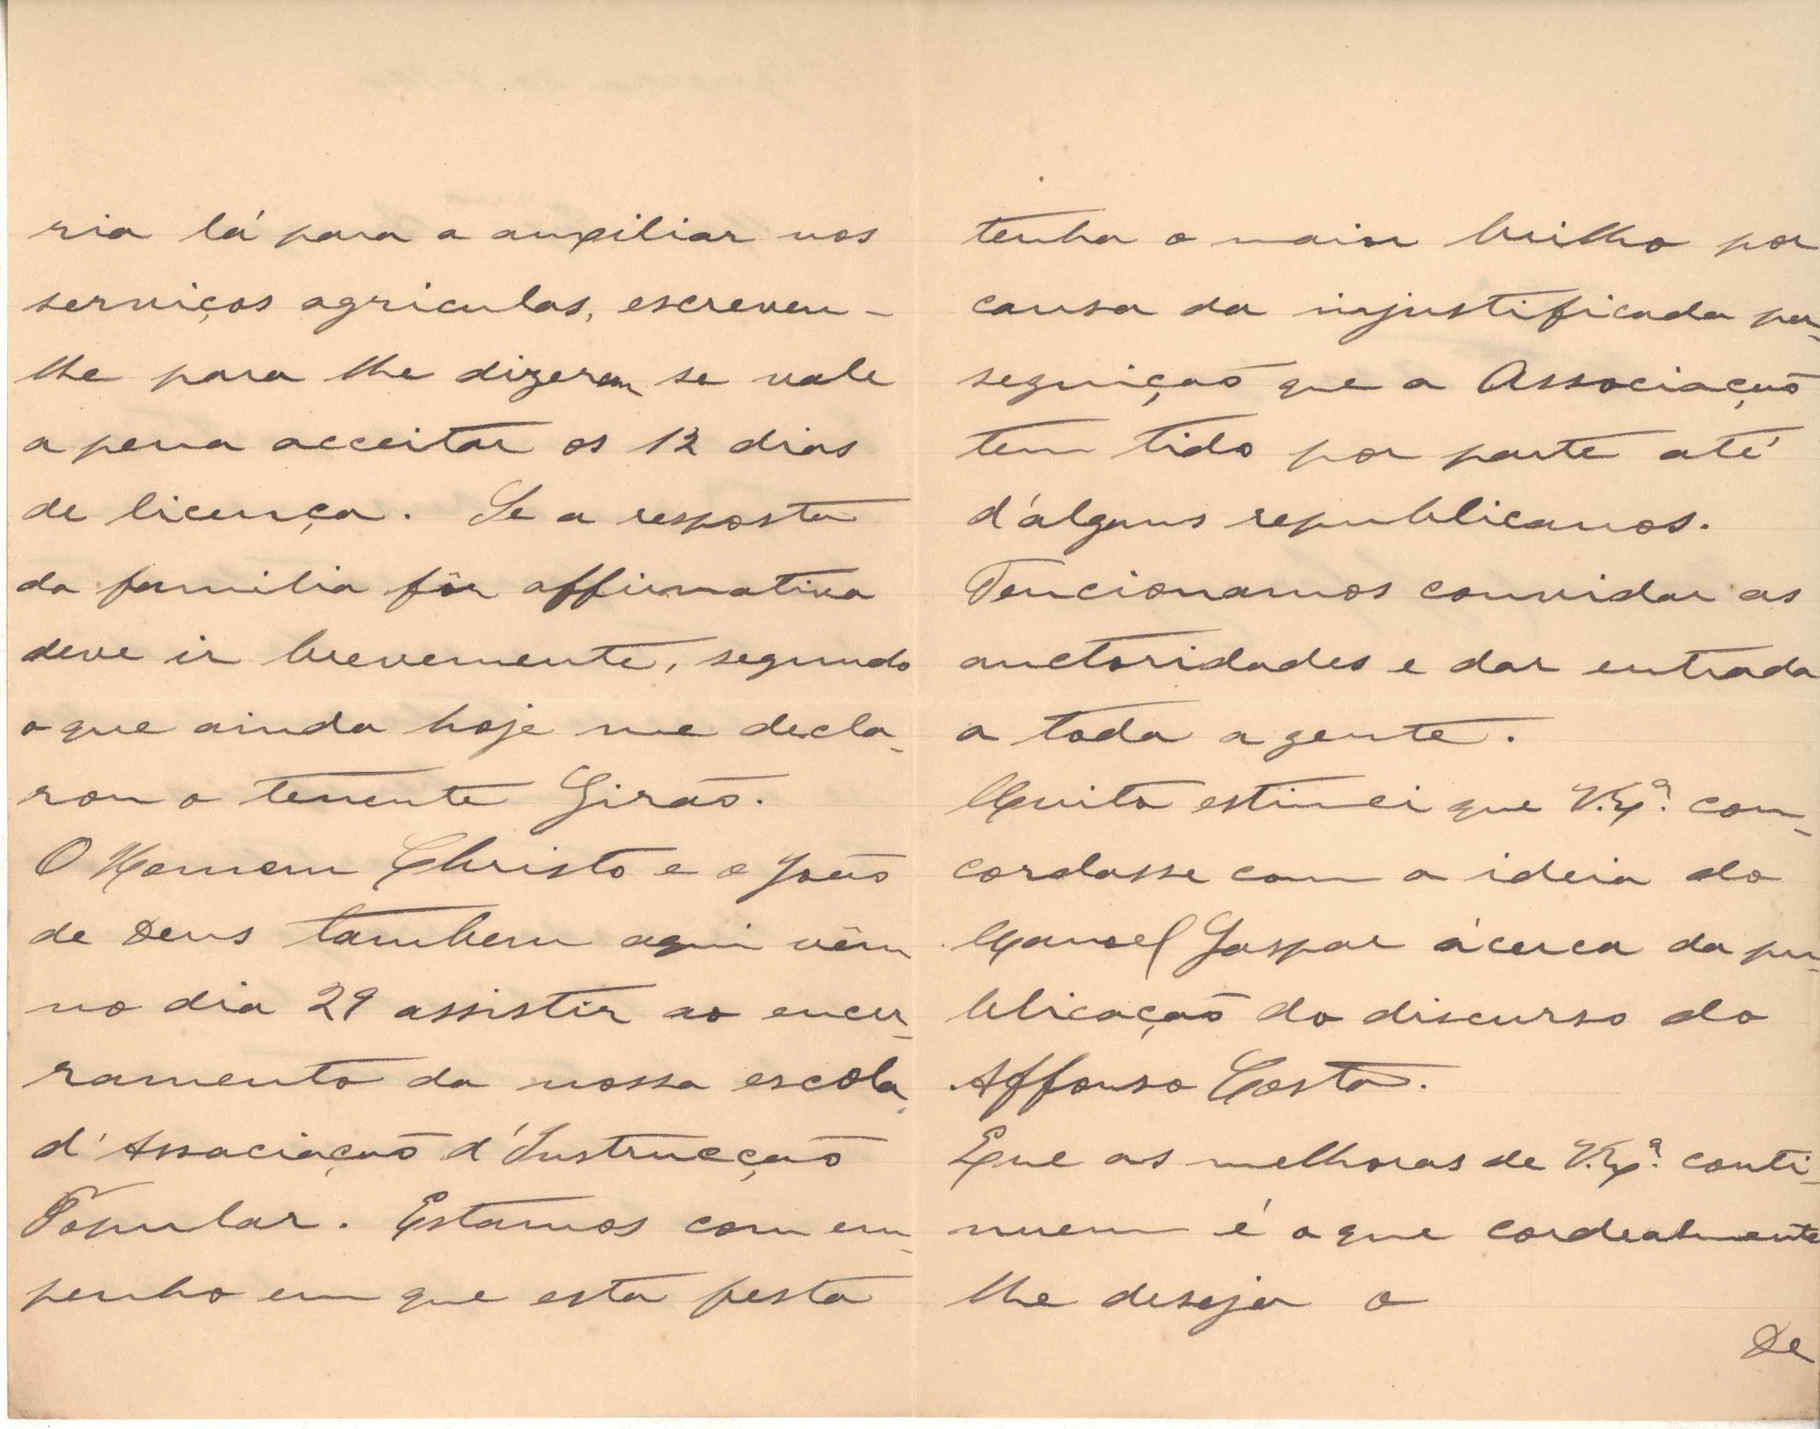 ria lá para a auxiliar nos
serviços agriculas, escreveu-
lhe para lhe dizerem se vale
a pena acceitar os 12 dias
de licença. Se a resposta
da familia fôr affirmativa
deve ir brevemente, segundo
o que ainda hoje me decla-
rou o tenente Girão.
O Homem Christo e o João
de Deus tambem aqui vêm
no dia 29 assistir ao encer-
ramento da nossa escola
d'Associação d'Instrucção
Popular. Estamos com em-
penho em que esta festa
tenha o maior brilho por
causa da injustificada per-
seguição que a Associação
tem tido por parte até
d'alguns republicanos.
Tencionamos convidar as
auctoridades e dar entrada
a toda a gente.
Muito estimei que V. Exª. con-
cordasse com a ideia do
Manoel Gaspar ácerca da pu-
blicação do discurso do
Affonso Costa.
Que as melhoras de V. Exª. conti-
nuem é o que cordealmente
lhe deseja o
De